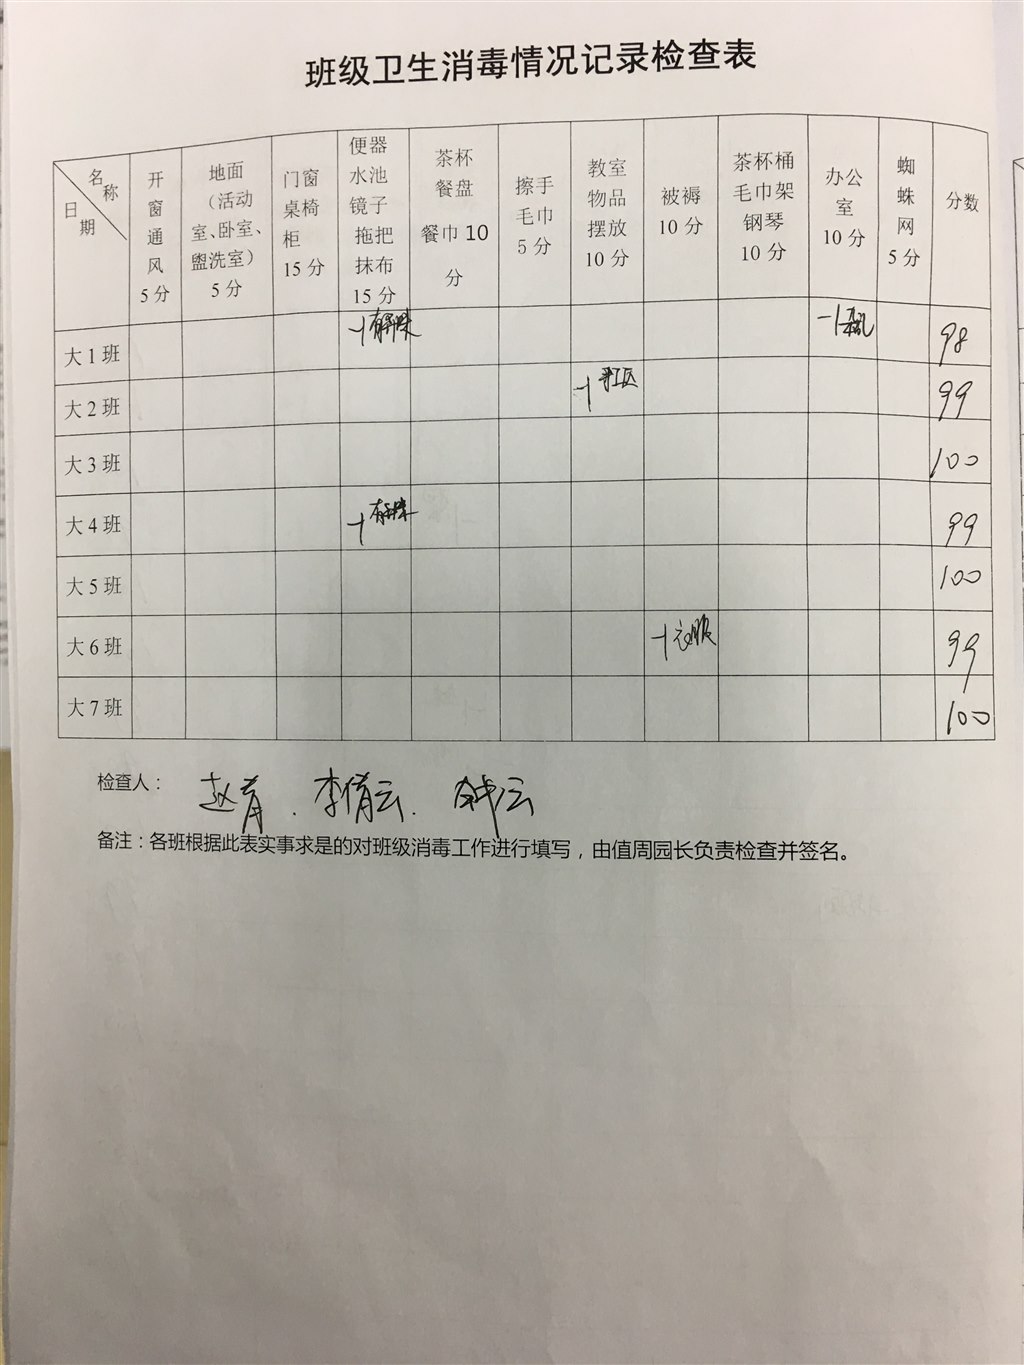 班级卫生消毒情况记录检查表
名称
日期
开窗通风 5分
地面（活动室、卧室、盥洗室） 5分
门窗桌椅柜 15分
便器水池镜子拖把抹布 15分
茶杯餐盘餐巾10分
擦手毛巾 5分
教室物品摆放 10分
被褥 10分
茶杯桶毛巾架钢琴 10分
办公室 10分
蜘蛛网 5分
分数
大1班 -1有异味 -1 98
大2班 -1 99
大3班 100
大4班 -1有异味 99
大5班 100
大6班 -1衣服 99
大7班 100
检查人： 赵青、李倩云、
备注：各班根据此表实事求是的对班级消毒工作进行填写，由值周园长负责检查并签名。